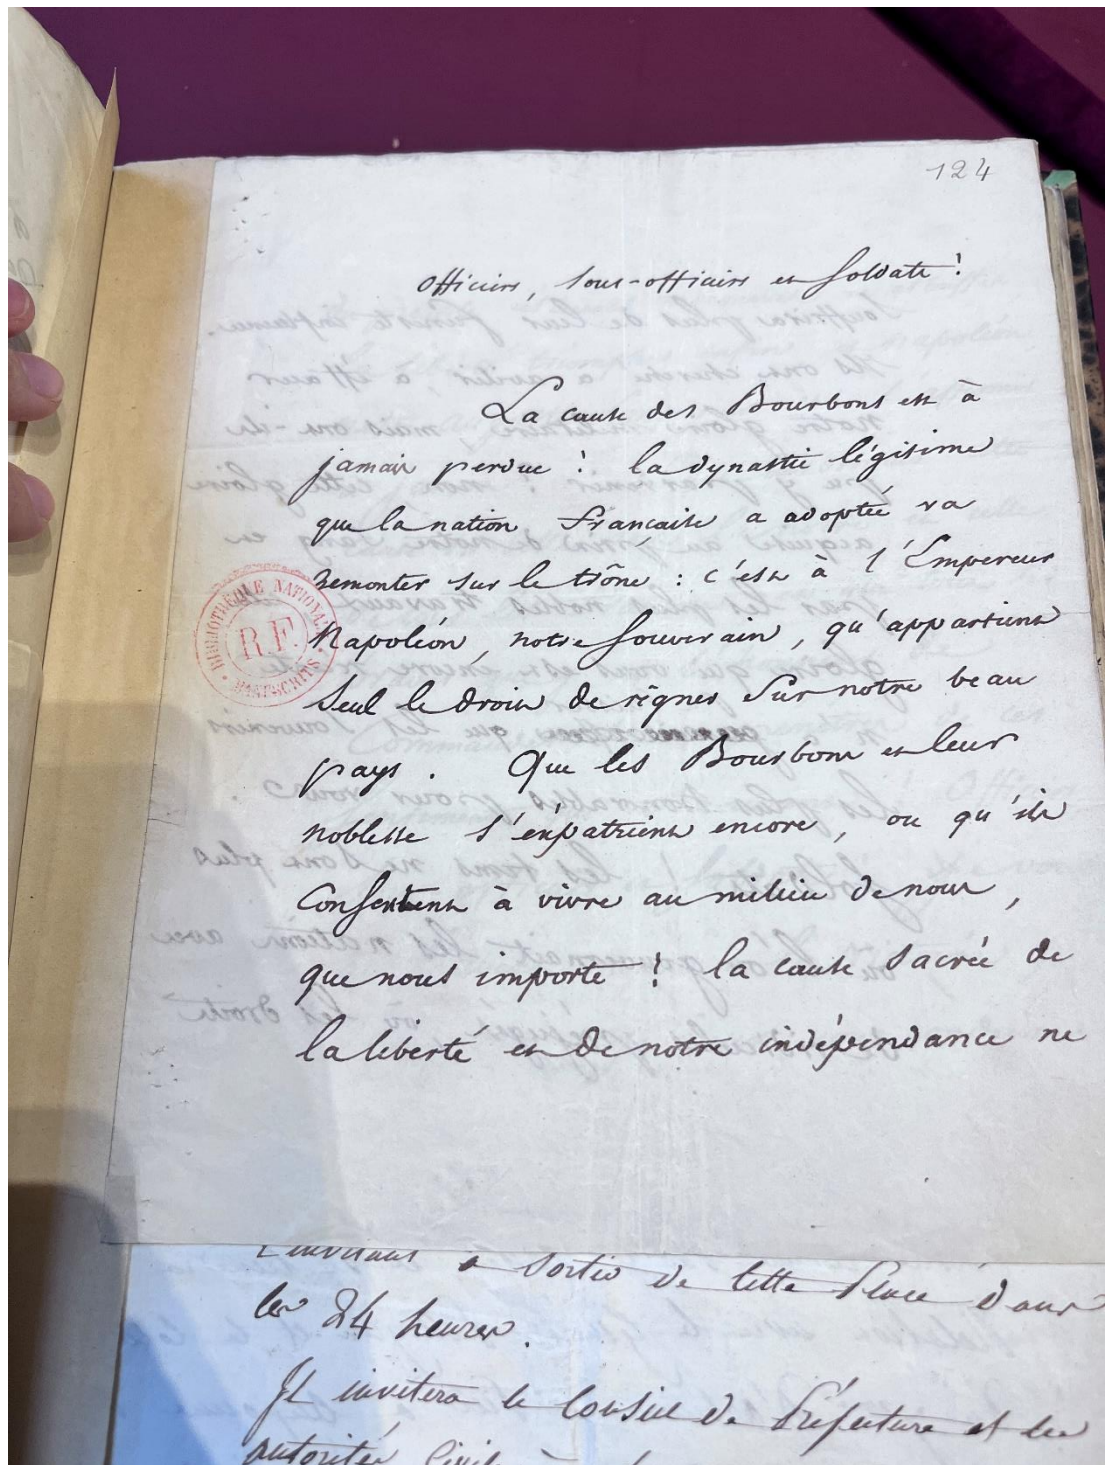 124
Officiers, sous-officiers et soldats !
La cause des Bourbons est à
jamais perdue ! la dynastie légitime
que la nation française a adoptée va
remonter sur le trône : c'est à l'Empereur
Napoléon, notre souverain, qu'appartient
seul le droit de règner sur notre beau
pays. Que les Bourbons et leur
noblesse s'expatrient encore, ou qu'ils
consentent à vivre au milieu de nous,
que nous importe ! la cause sacrée de
la liberté et de notre indépendance ne
BIBLIOTHÈQUE NATIONALE
R.F.
MANUSCRITS
à sortir de cette Place dans
les 24 heures.
Il invitera le Conseil de Préfecture et les
autorités